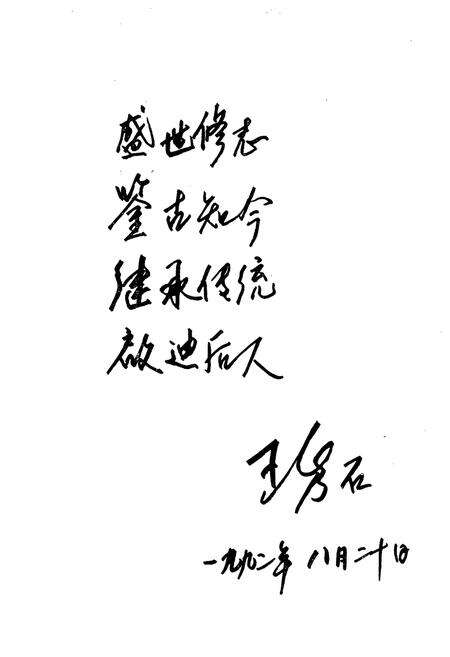 盛世修志
鉴古知今
继承传统
启迪后人
王秀石
一九九二年 八月二十日